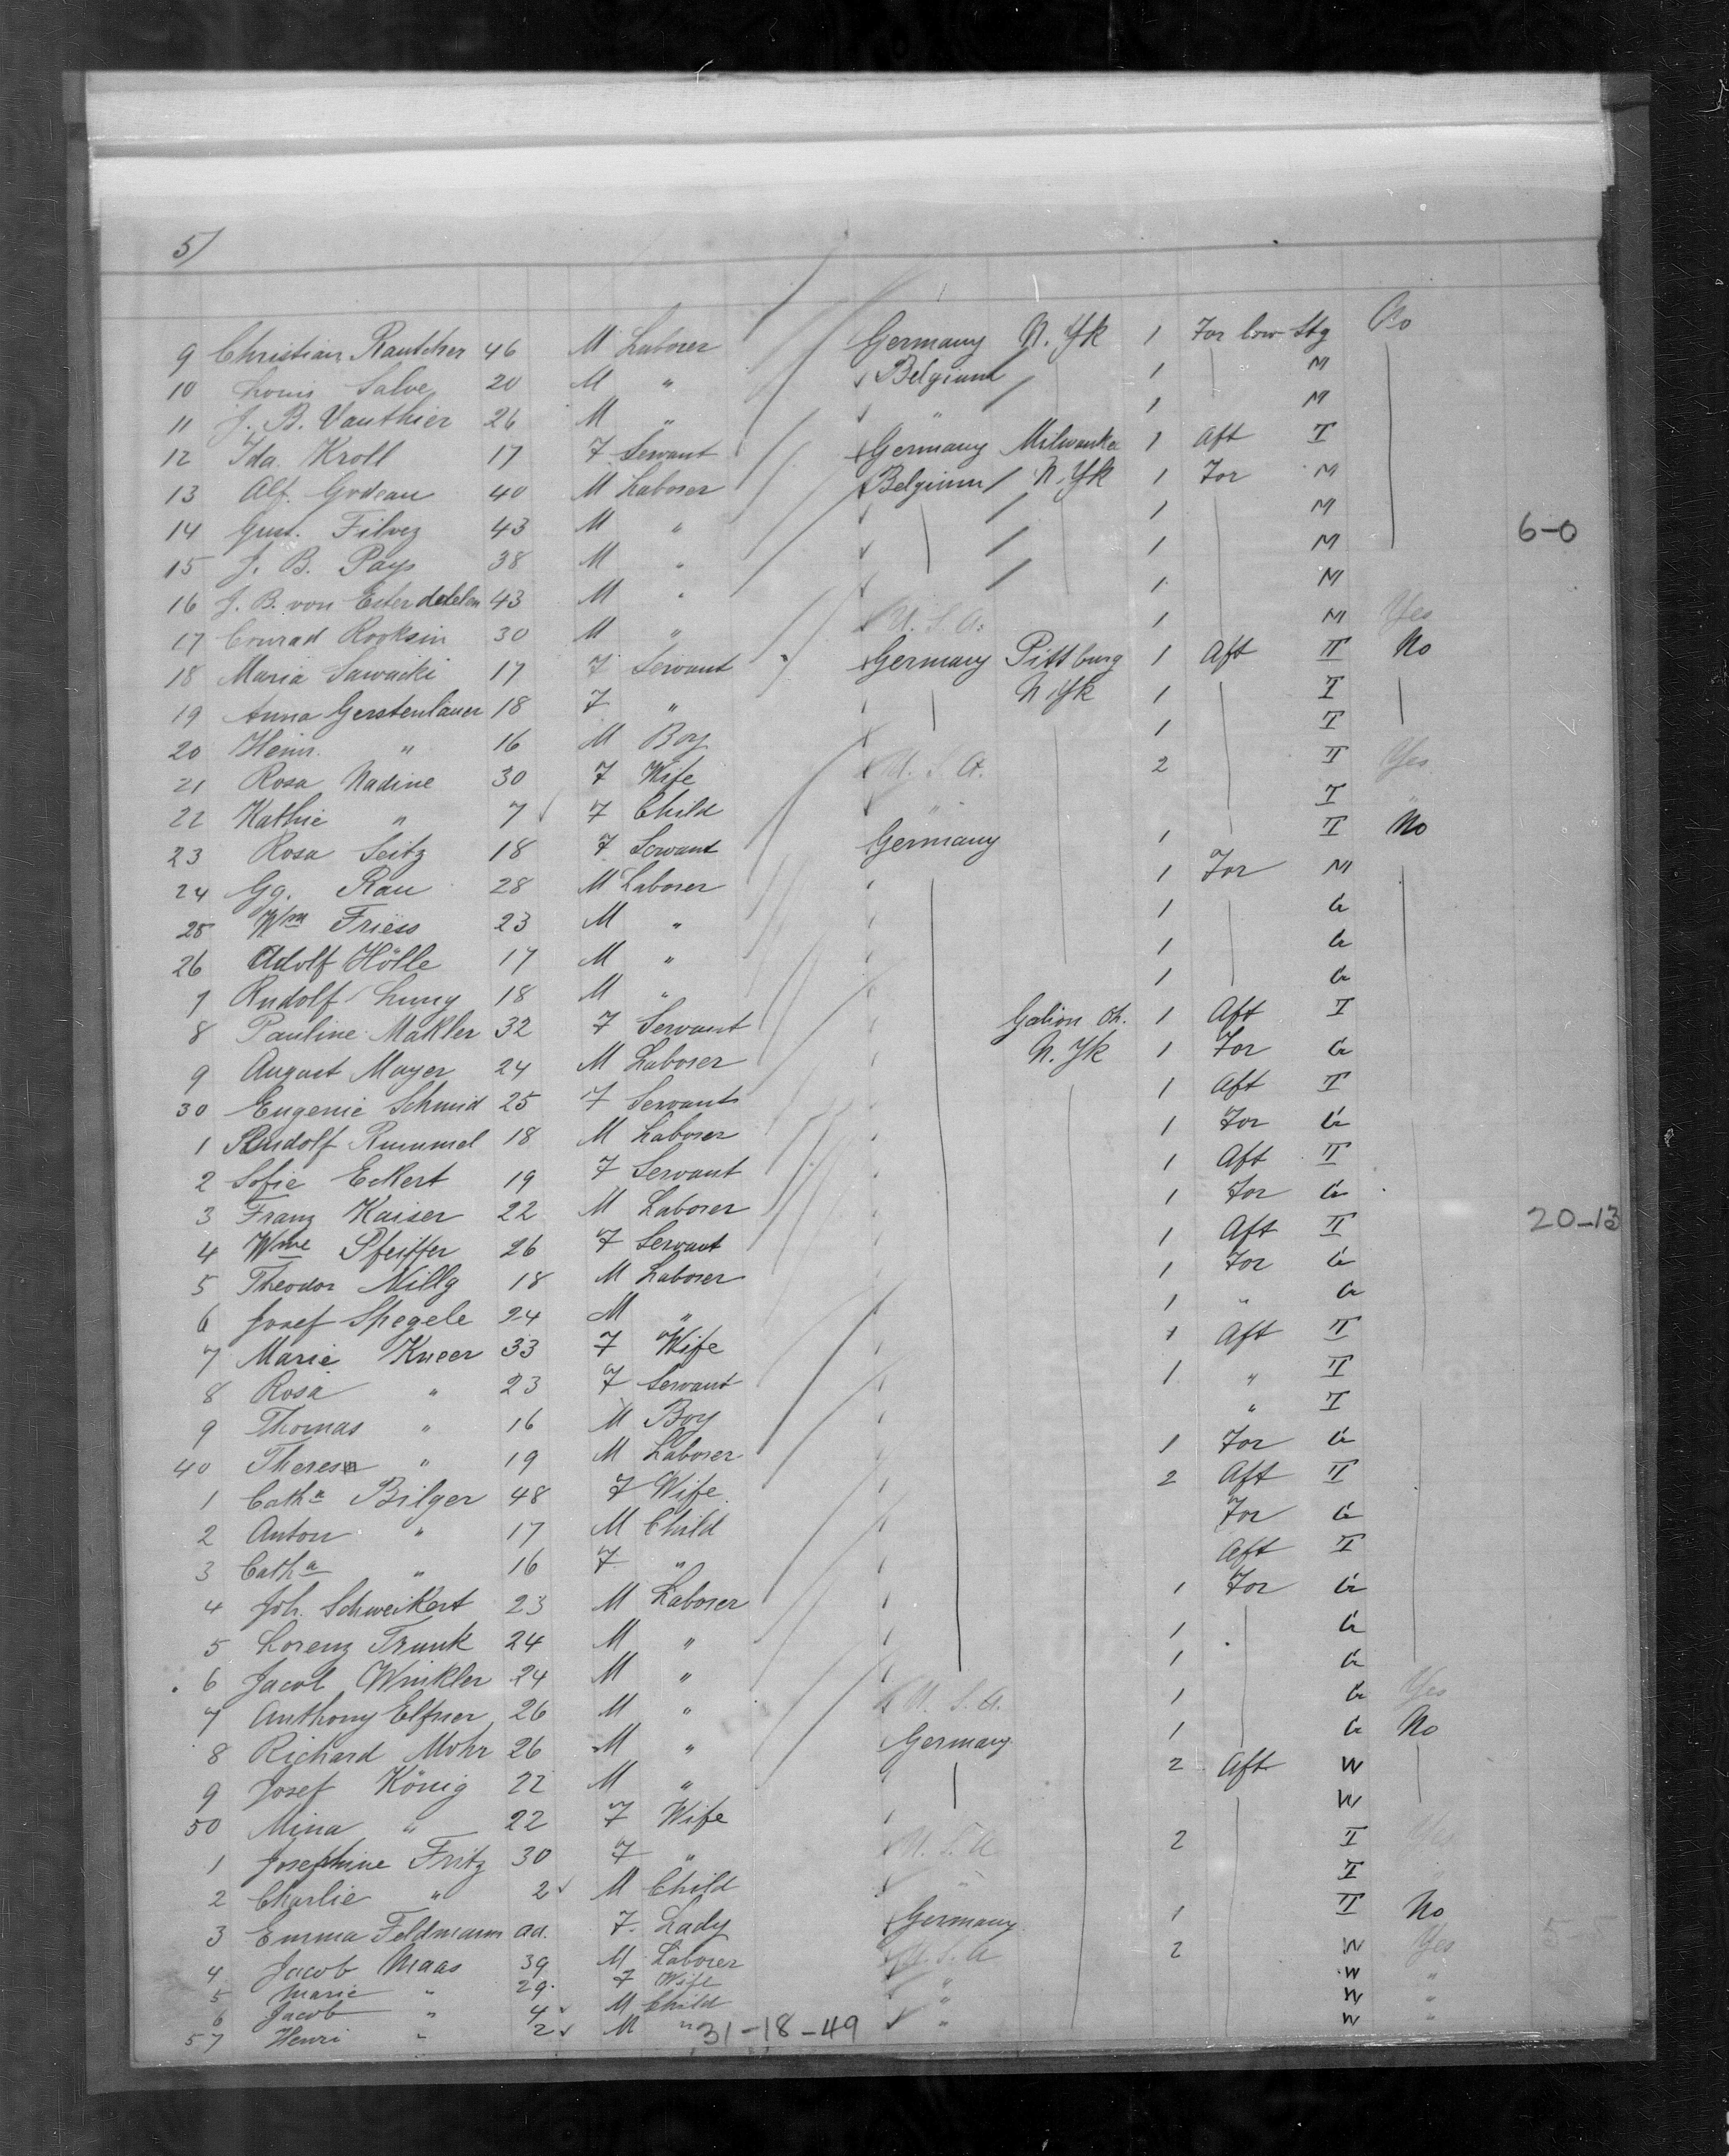 5/
9 Christian Rautcher 46 M Laborer Germany N. Yk 1 For low Stg No
10 Louis Salve 20 M " Belgium 1 M
11 J. B. Vauthier 26 M " " 1 M
12 Ida Kroll 17 F Servant Germany Milwaukee 1 Aft T
13 Alf. Godeau 40 M Laborer Belgium N. Yk 1 For M
14 Gust. Filvez 43 M " 1 M
15 J. B. Pays 38 M " 1 M 6-0
16 J. B. von 43 M " 1 M
17 Conrad Rooksin 30 M " U. S. A. 1 M Yes
18 Maria Sawacki 17 F Servant Germany Pittburg 1 Aft T No
19 Anna Gerstenlauer 18 F " N. Yk 1 T
20 Heinr. " 16 M Boy 1 T
21 Rosa Nadine 30 F Wife U. S. A. 2 T Yes
22 Kathie " 7 F Child " T "
23 Rosa Seitz 18 F Servant Germany 1 T No
24 Gg. Rau 28 M Laborer 1 For M
25 Wm Friess 23 M " 1 G
26 Adolf Hölle 17 M " 1 G
7 Rudolf Lung 18 M " 1 G
8 Pauline Makler 32 F Servant Galion Oh. 1 Aft T
9 August Mayer 24 M Laborer N. Yk 1 For G
30 Eugenie Schmid 25 F Servant 1 Aft T
1 Rudolf Rummel 18 M Laborer 1 For G
2 Sofie Eckert 19 F Servant 1 Aft T
3 Franz Kaiser 22 M Laborer 1 For G
4 Wme Pfeiffer 26 F Servant 1 Aft T 20-13
5 Theodor Nillg 18 M Laborer 1 For G
6 Josef Spegele 24 M " 1 " G
7 Marie Kneer 33 F Wife 1 Aft T
8 Rosa " 23 F Servant 1 " T
9 Thomas " 16 M Boy " T
40 " 19 M Laborer 1 For G
1 Catha Bilger 48 F Wife 2 Aft T
2 Anton " 17 M Child For G
3 Catha " 16 F " Aft T
4 Joh. Schweikert 23 M Laborer 1 For G
5 Lorenz Trunk 24 M " 1 G
6 Jacob Winkler 24 M " 1 G
7 Anthony Elfner 26 M " U. S. A. 1 G Yes
8 Richard Mohr 26 M " Germany 1 G No
9 Josef König 22 M " 2 Aft W
50 Mina " 22 F Wife W
1 Josephine Fritz 30 F " U. S. A 2 T Yes
2 Charlie " 2 M Child " T
3 Emma Feldmann ad. F Lady Germany 1 T No
4 Jacob Maas 39 M Laborer U. S. A 2 W Yes
5 Marie " 29 F Wife " W "
6 Jacob " 4 M Child " W "
57 Henri " 2 M " 31-18-49 " W "